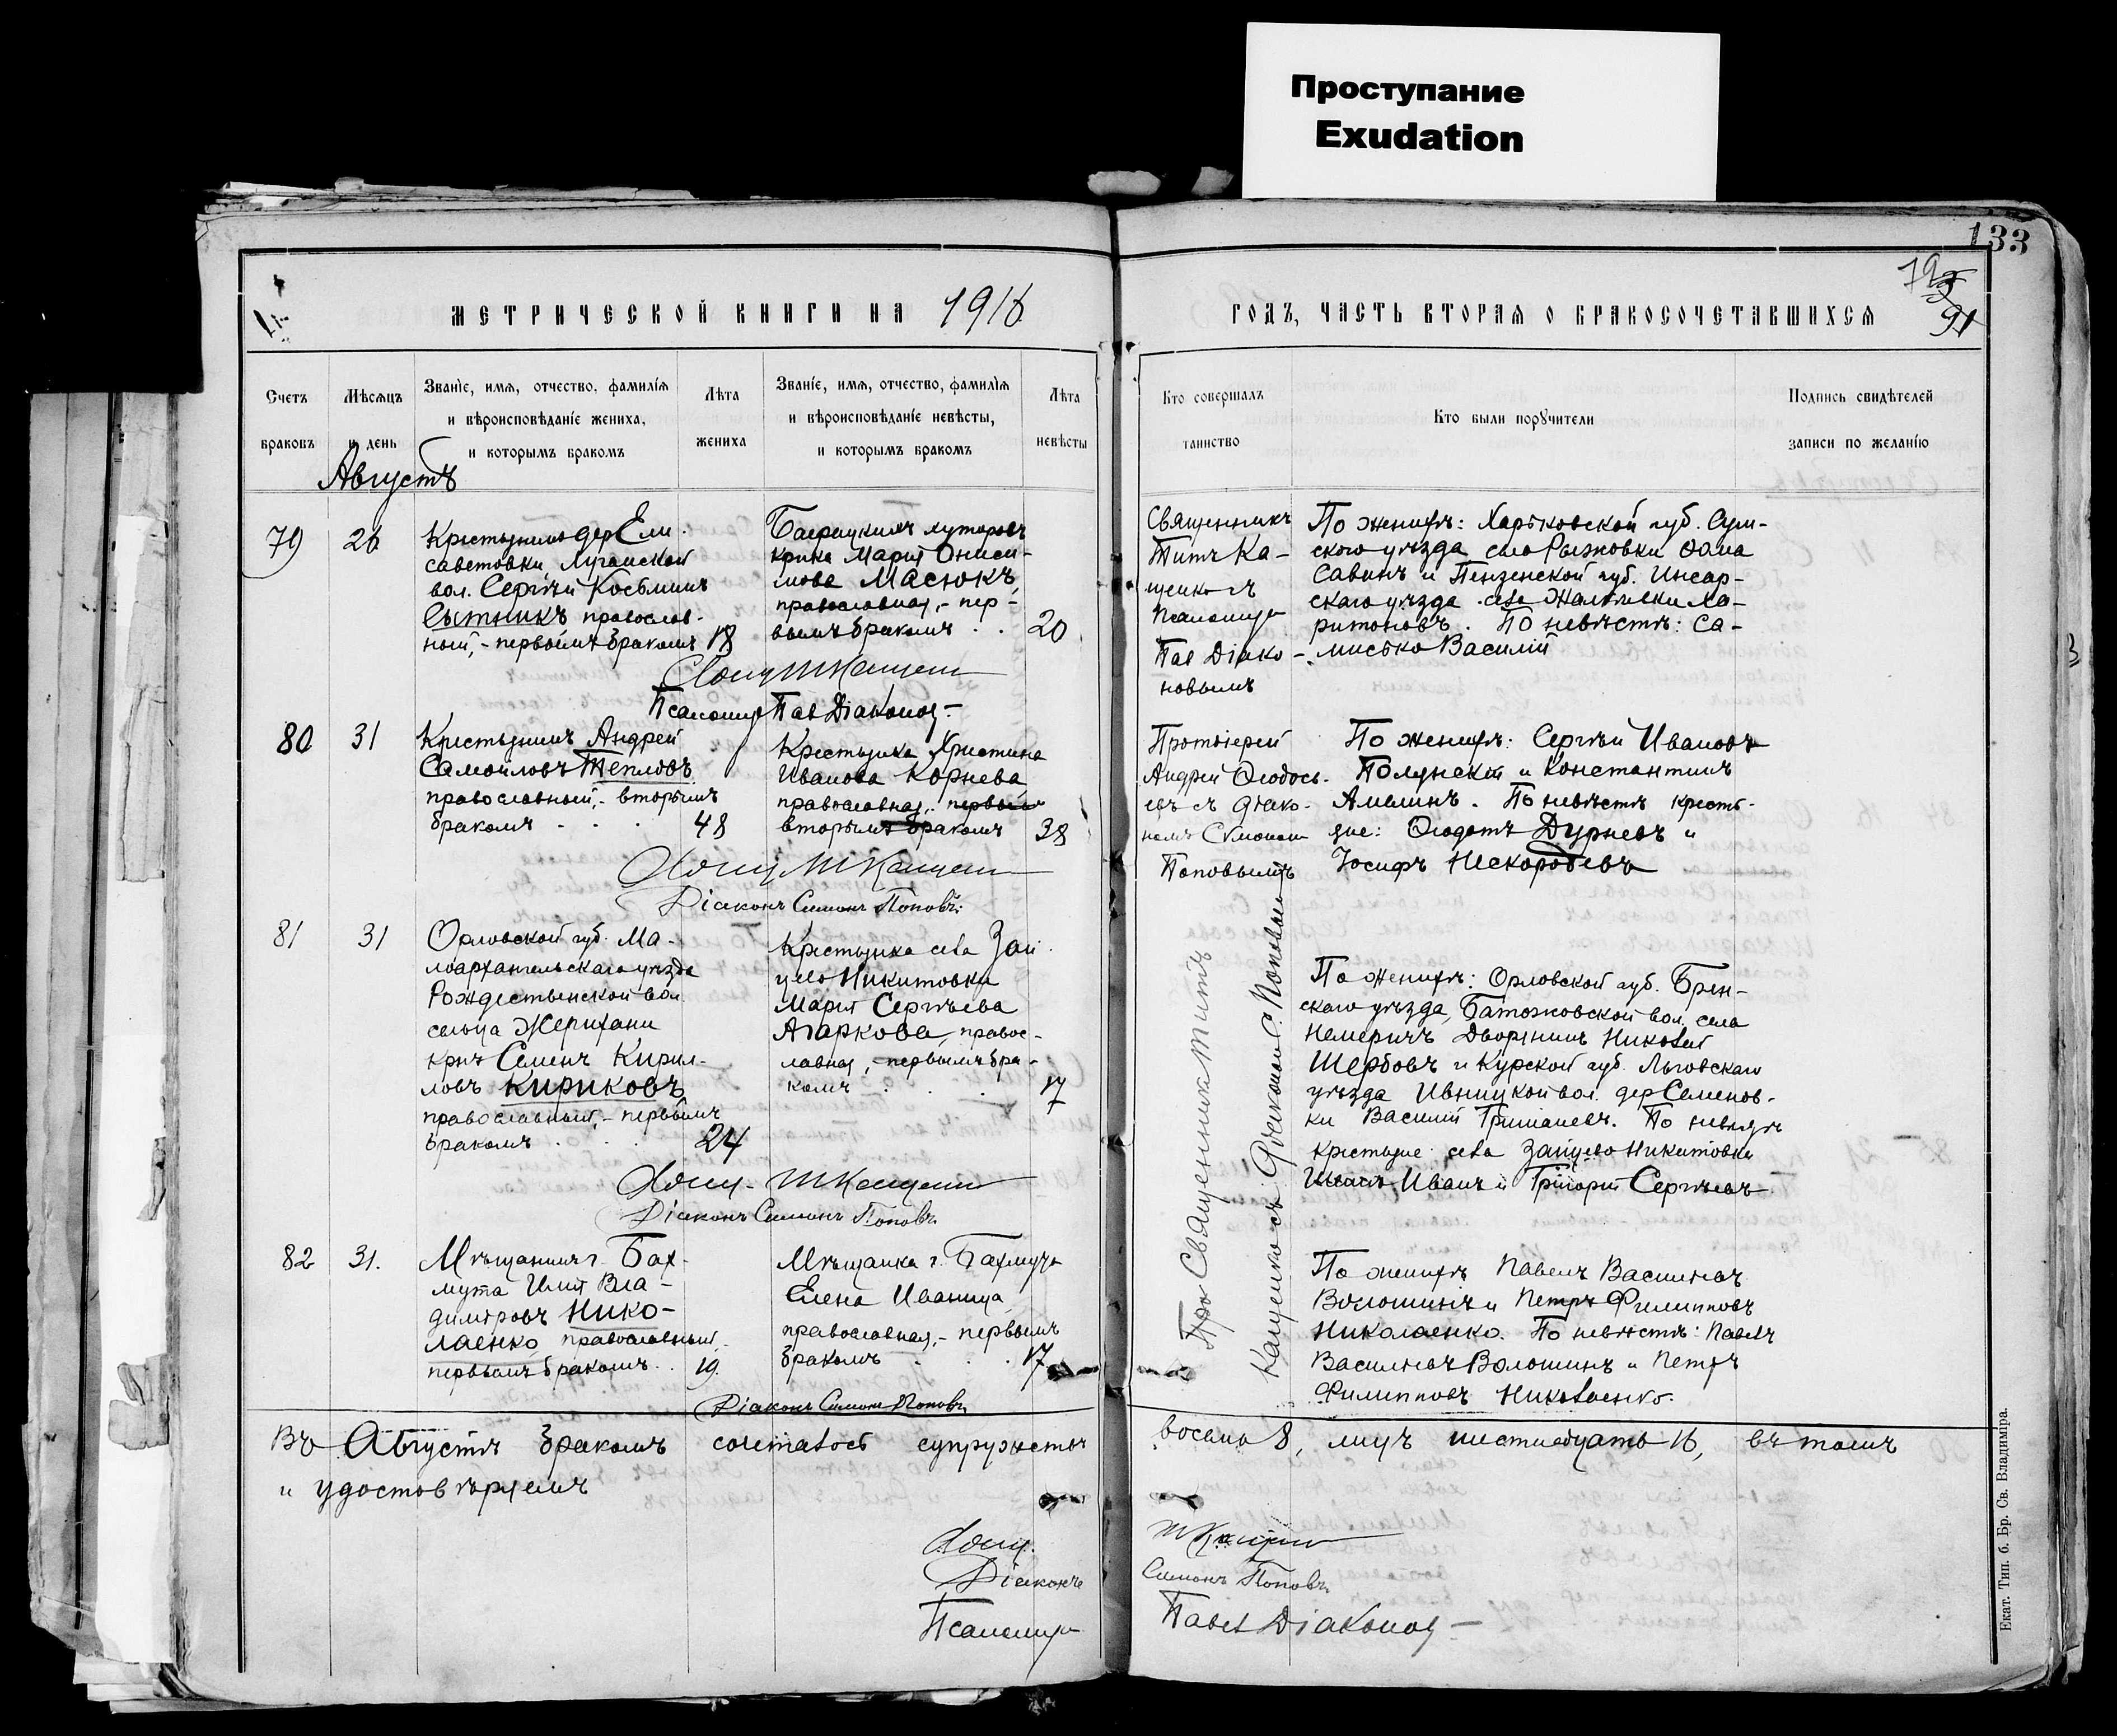 Проступание
Exudation
133
91
МЕТРИЧЕСКОЙ КНИГИ НА 1916
ГОДЪ, ЧАСТЬ ВТОРАЯ О БРАКОСОЧЕТАВШИХСЯ
Счетъ браковъ
Мѣсяцъ и день
Званіе, имя, отчество, фамилія
и вѣроисповѣданіе жениха,
и которымъ бракомъ
Лѣта жениха
Званіе, имя, отчество, фамилія
и вѣроисповѣданіе невѣсты,
и которымъ бракомъ
Лѣта невѣсты
Кто совершалъ таинство
Кто были поручители
Подпись свидѣтелей
записи по желанію
Августъ
79
26
Крестьянинъ дер Ели-
саветовки, Луганской
вол. Сергѣй Косьминъ
Сытникъ православ-
ный, - первымъ бракомъ
18
хуторовъ
крка Марія Ониси-
мова Масюкъ,
православная, - пер-
вымъ бракомъ
20
Священникъ
Титъ Ка-
щенко съ
Псаломщ
Пав Діако-
новымъ
По женихѣ: Харьковской губ. Сум-
скаго уѣзда села Рыжовки Ѳома
Савинъ и Пензенской губ. Инсар-
скаго уѣзда села Ха-
ритоновъ. По невѣстѣ: Са-
мисько Василій
Свящ Т Кащенко
Псаломщ Пав Діаконов
80
31
Крестьянинъ Андрей
Самойловъ Тепловъ,
православный, - вторымъ
бракомъ
48
Крестьянка Христина
Иванова Корнева
православная, первымъ
вторымъ бракомъ
38
Протоіерей
Андрей Ѳеодось-
евъ съ діако-
номъ Симоном
Поповымъ
По женихѣ: Сергѣй Ивановъ
и Константинъ
Амелинъ. По невѣстѣ кресть-
яне: Ѳеодотъ Дурневъ и
Іосифъ Нескородевъ
Свящ Т Кащенко
Діаконъ Симонъ Поповъ
81
31
Орловской губ. Ма-
лоархангельскаго уѣзда
Рождественской вол.
сельца
крнъ Семенъ Кирил-
ловъ Кириковъ
православный, - первымъ
бракомъ
24
Крестьянка села Зай
цево Никитовки
Марія Сергѣева
Агаркова, правос-
лавная, - первымъ бра-
комъ
17
Пр Священникъ Титъ
Кащенко съ Діакономъ С. Поповымъ
По женихѣ: Орловской губ. Брян-
скаго уѣзда, Батожковской вол. села
Немеричъ Дворянинъ Николай
Щербовъ и Курской губ. Льговскаго
уѣзда Ивницкой вол. дер Семенов-
ки Василій По невѣстѣ
крестьяне села Зайцево Никитовки
Иванъ и Григорій Сергѣевъ
Свящ. Т Кащенко
Діаконъ Симонъ Поповъ
82
31.
Мѣщанинъ г. Бах-
мута Илія Вла-
димировъ Нико-
лаенко, православный,
первымъ бракомъ
19.
Мѣщанка г. Бахмута
Елена Иваница,
православная, - первымъ
бракомъ
17
По женихѣ Павелъ Васильевъ
Волошинъ и Петръ Филипповъ
Николаенко. По невѣстѣ: Павелъ
Васильевъ Волошинъ и Петръ
Филипповъ Николаенко.
Діаконъ Симонъ Поповъ
Въ Августѣ бракомъ сочеталось супружествъ восемь 8, лицъ шестнадцать 16, въ томъ
и удостовѣряемъ
Свящ. Т Кащенко
Діаконъ Симонъ Поповъ
Псаломщ Павел Діаконов
Екат. Тип. б. Бр. Св. Владимира.